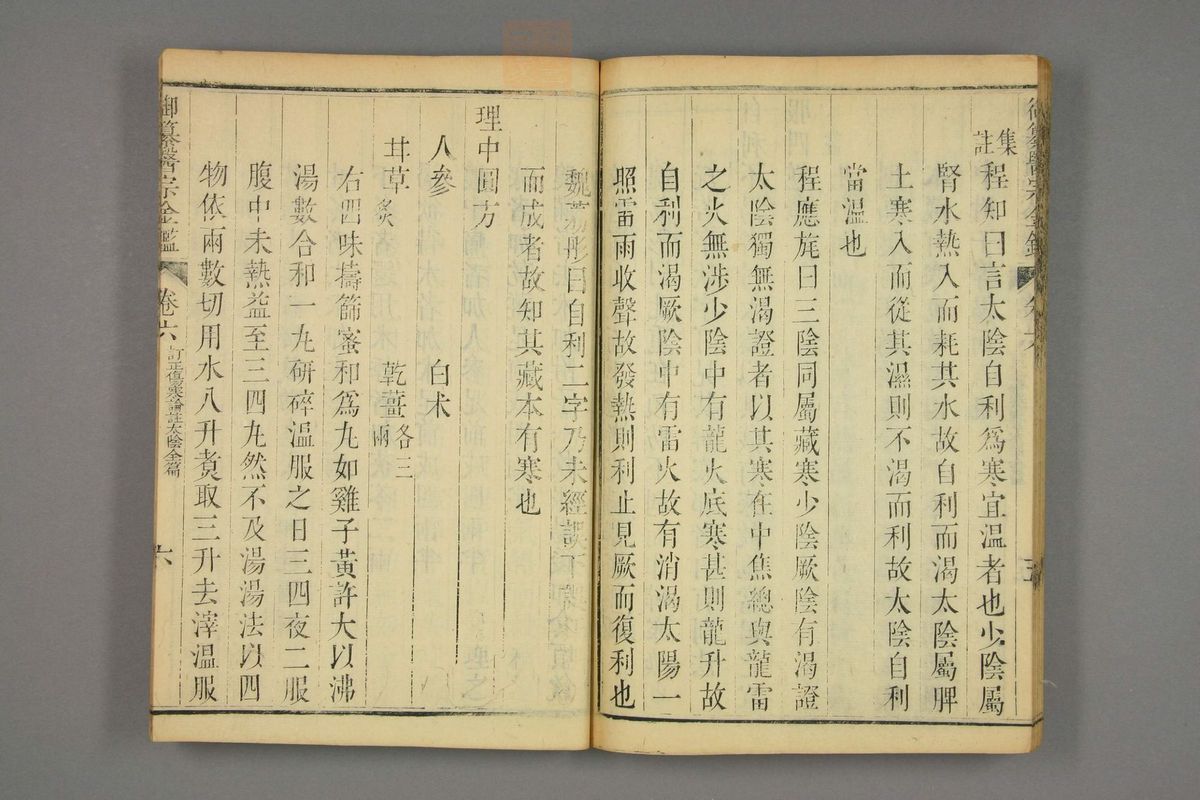 御纂醫宗金鑑 卷六 五
集註 程知曰言太陰自利爲寒宜溫者也少陰屬
腎水熱入而耗其水故自利而渴太陰屬脾
土寒入而從其濕則不渴而利故太陰自利
當溫也
程應旄曰三陰同屬藏寒少陰厥陰有渴證
太陰獨無渴證者以其寒在中焦總與龍雷
之火無涉少陰中有龍火底寒甚則龍升故
自利而渴厥陰中有雷火故有消渴太陽一
照雷雨收聲故發熱則利止見厥而復利也
魏荔彤曰自利二字乃未經誤下
而成者故知其藏本有寒也
理中圓方
人參 白术
甘草炙 乾薑各三兩
右四味擣篩蜜和爲丸如雞子黃許大以沸
湯數合和一丸研碎溫服之日三四夜二服
腹中未熱益至三四丸然不及湯湯法以四
物依兩數切用水八升煮取三升去滓溫服
御纂醫宗金鑑 卷六 訂正傷寒論註太陰全篇 六